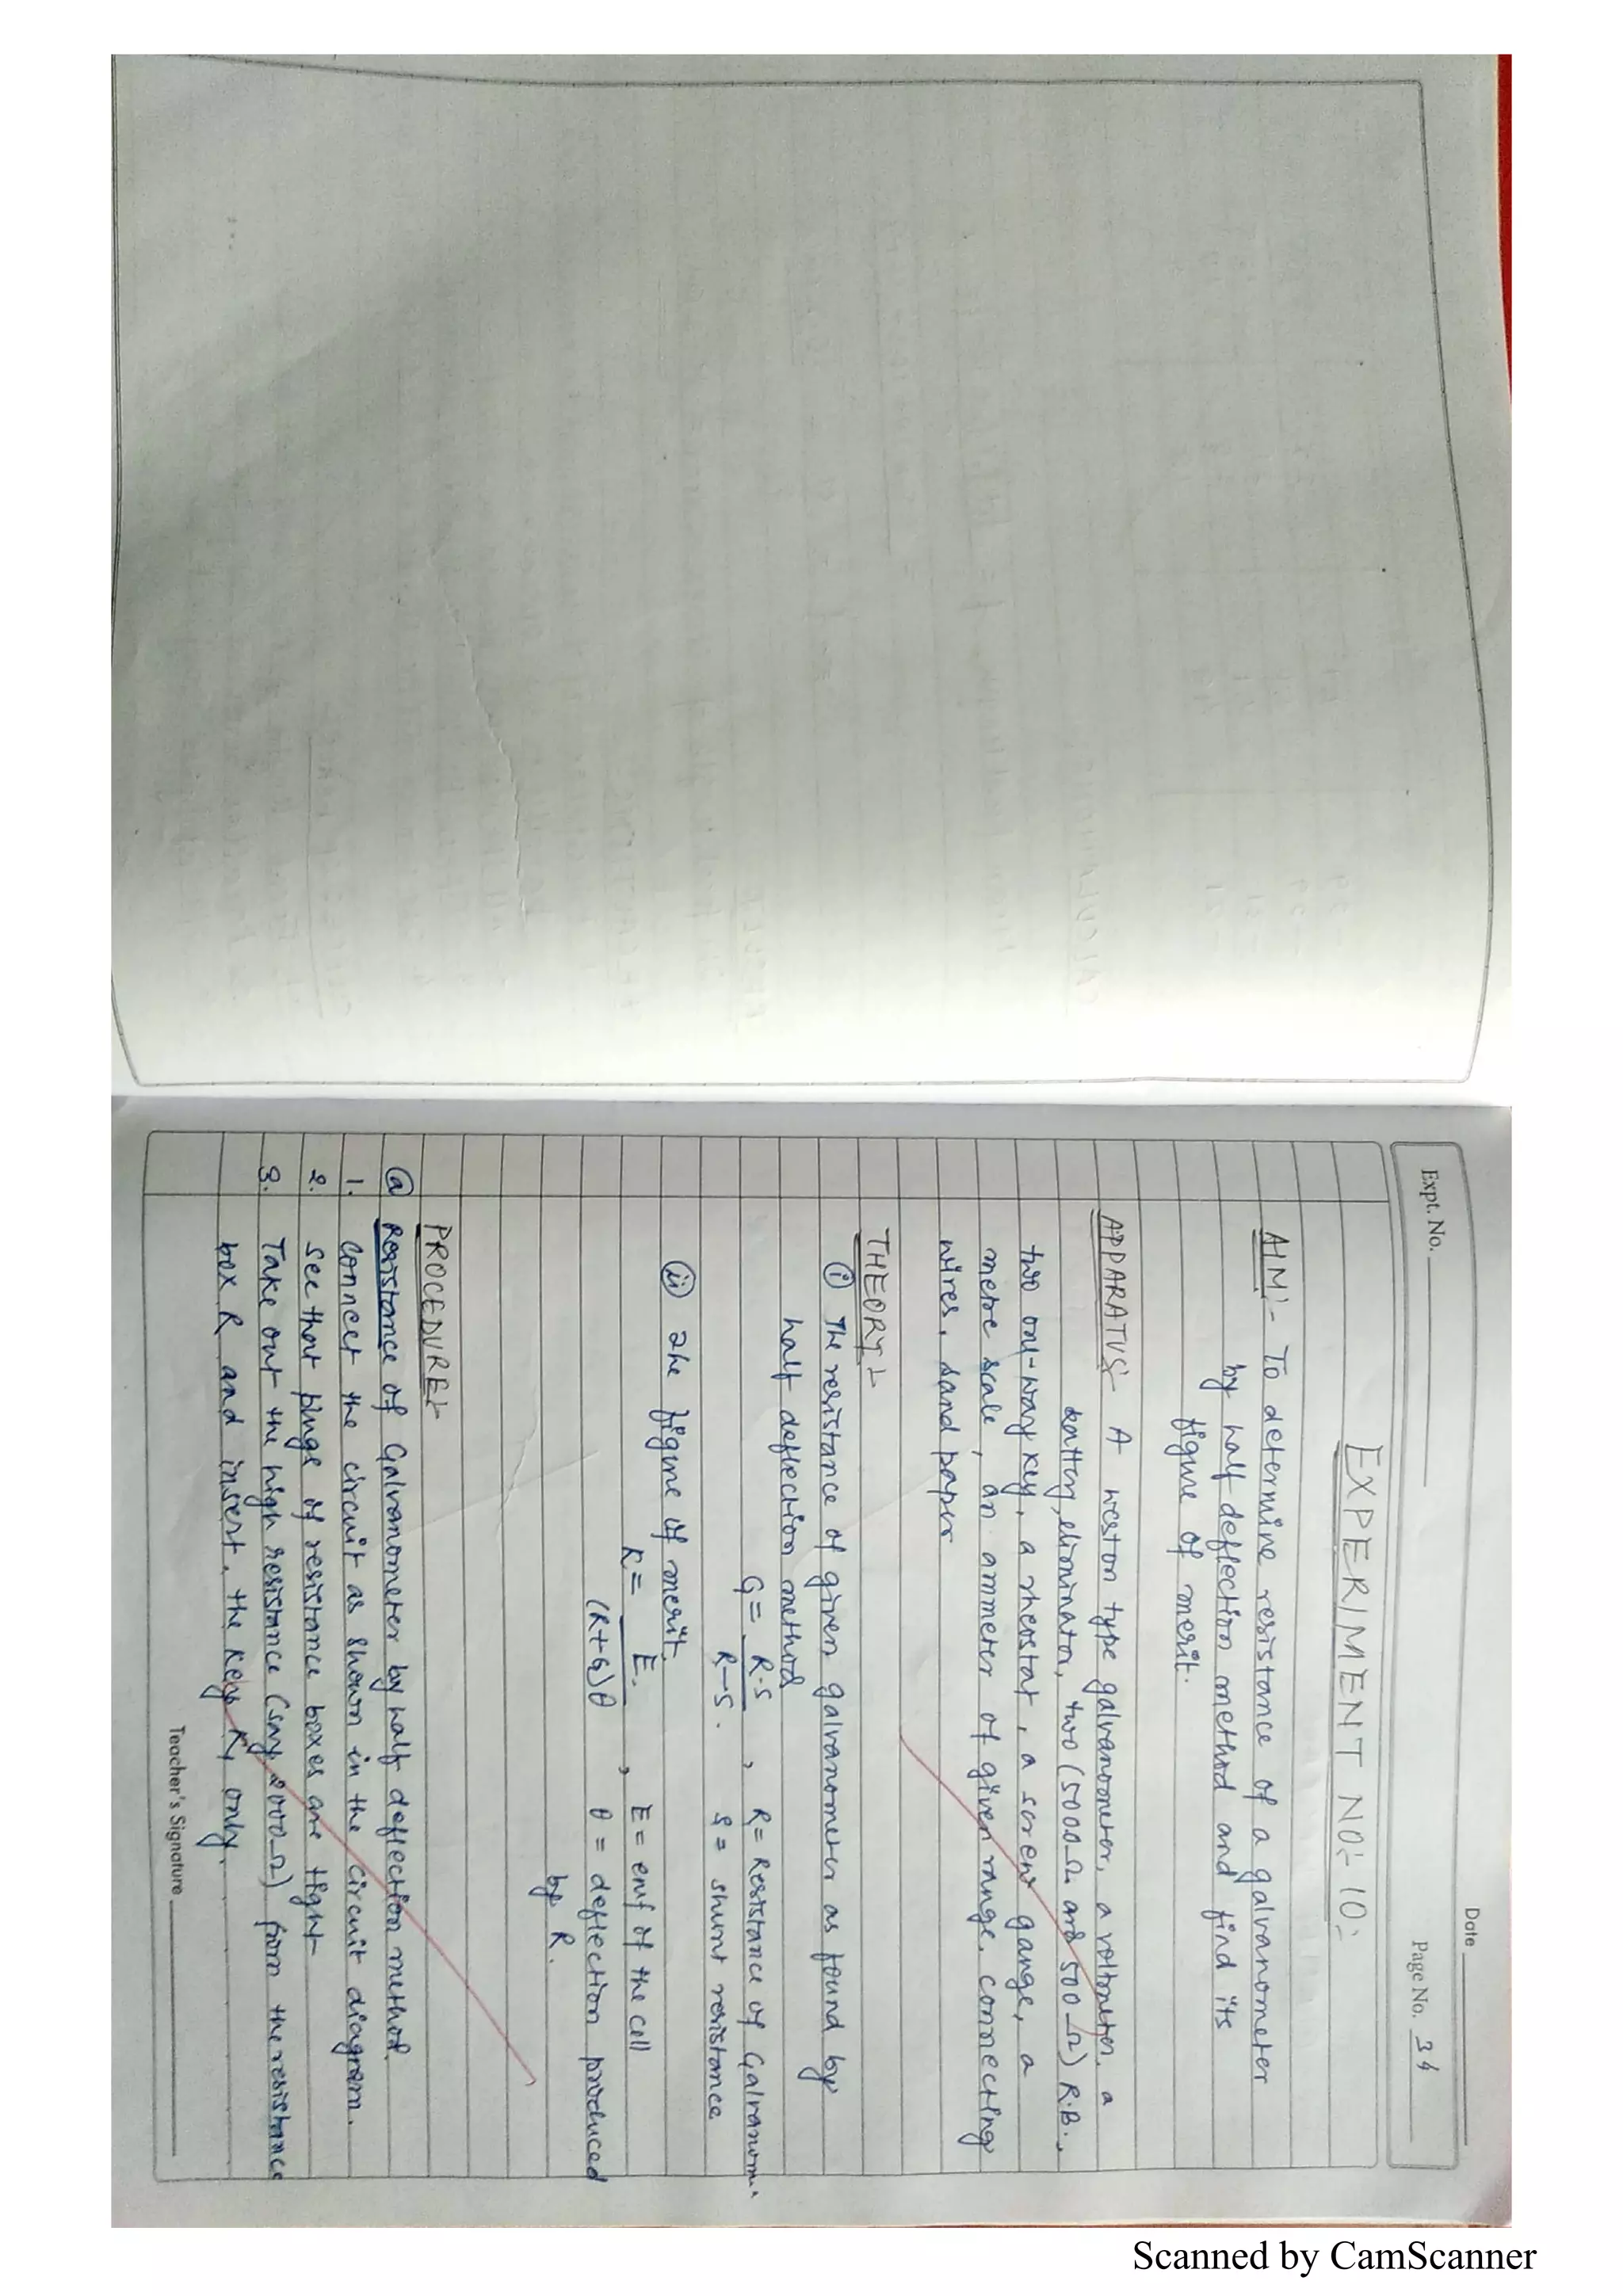 Date
Expt. No.
Page No. 34
EXPERIMENT NO:- 10:-
AIM:- To determine resistance of a galvanometer
by half deflection method and find its
figure of merit.
APPARATUS:- A weston type galvanometer, a voltmeter, a
battery eliminator, two (5000Ω and 500Ω) R.B.,
two one-way key, a rheostat, a screw gauge, a
metre scale, an ammeter of given range, connecting
wires, sand paper
THEORY:-
(i) The resistance of given galvanometer as found by
half deflection method
G = R.S / R-S. , R = Resistance of Galvanom..
S = shunt resistance
(ii) The figure of merit.
K = E. / (R+G)θ , E = emf of the cell
θ = deflection produced
by R.
PROCEDURE:-
(a) Resistance of Galvanometer by half deflection method.
1. Connect the circuit as shown in the circuit diagram.
2. See that plugs of resistance boxes are tight
3. Take out the high resistance (say 2000Ω) from the resistance
box R and insert, the key K1 only.
Teacher's Signature
Scanned by CamScanner